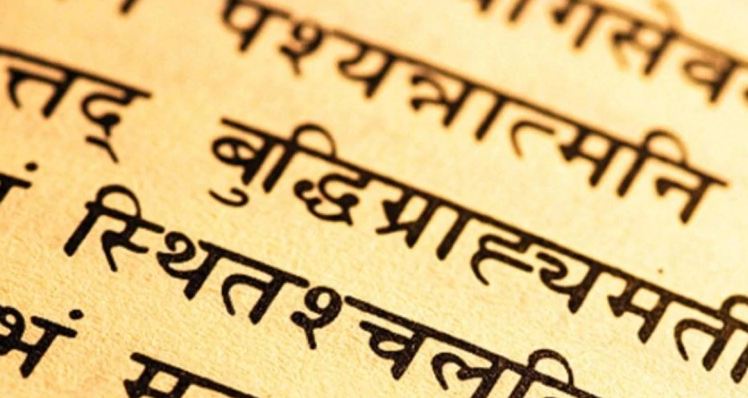 गसेव
पश्यन्नात्मनि
त्तद् बुद्धिग्राह्यमती
ं स्थितश्चलति
भं